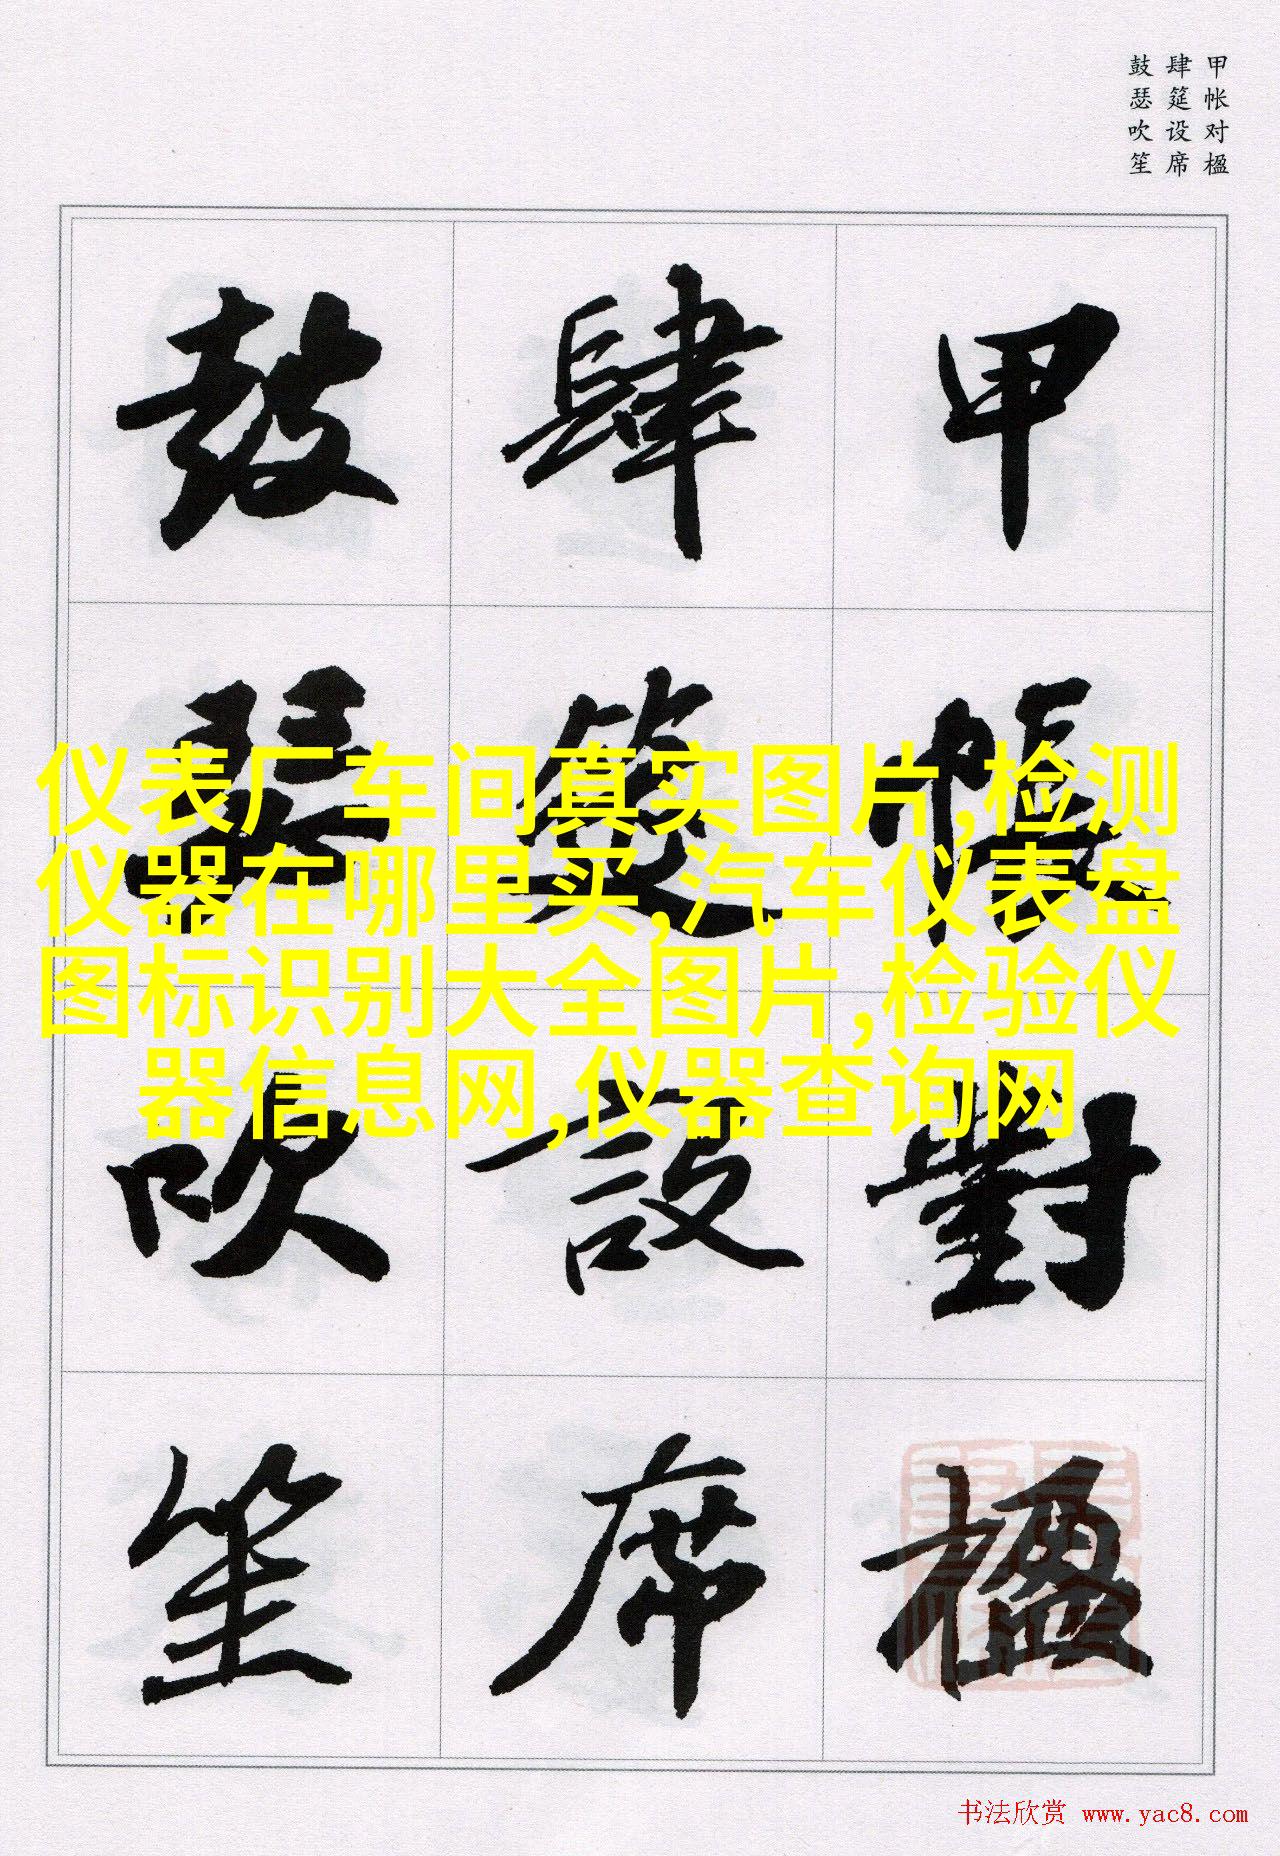 甲帐对楹
肆筵设席
鼓瑟吹笙
甲帳對楹
肆筵設席
鼓瑟吹笙
仪表厂车间真实图片,检测
仪器在哪里买,汽车仪表盘
图标识别大全图片,检验仪
器信息网,仪器查询网
书法欣赏 www.yac8.com